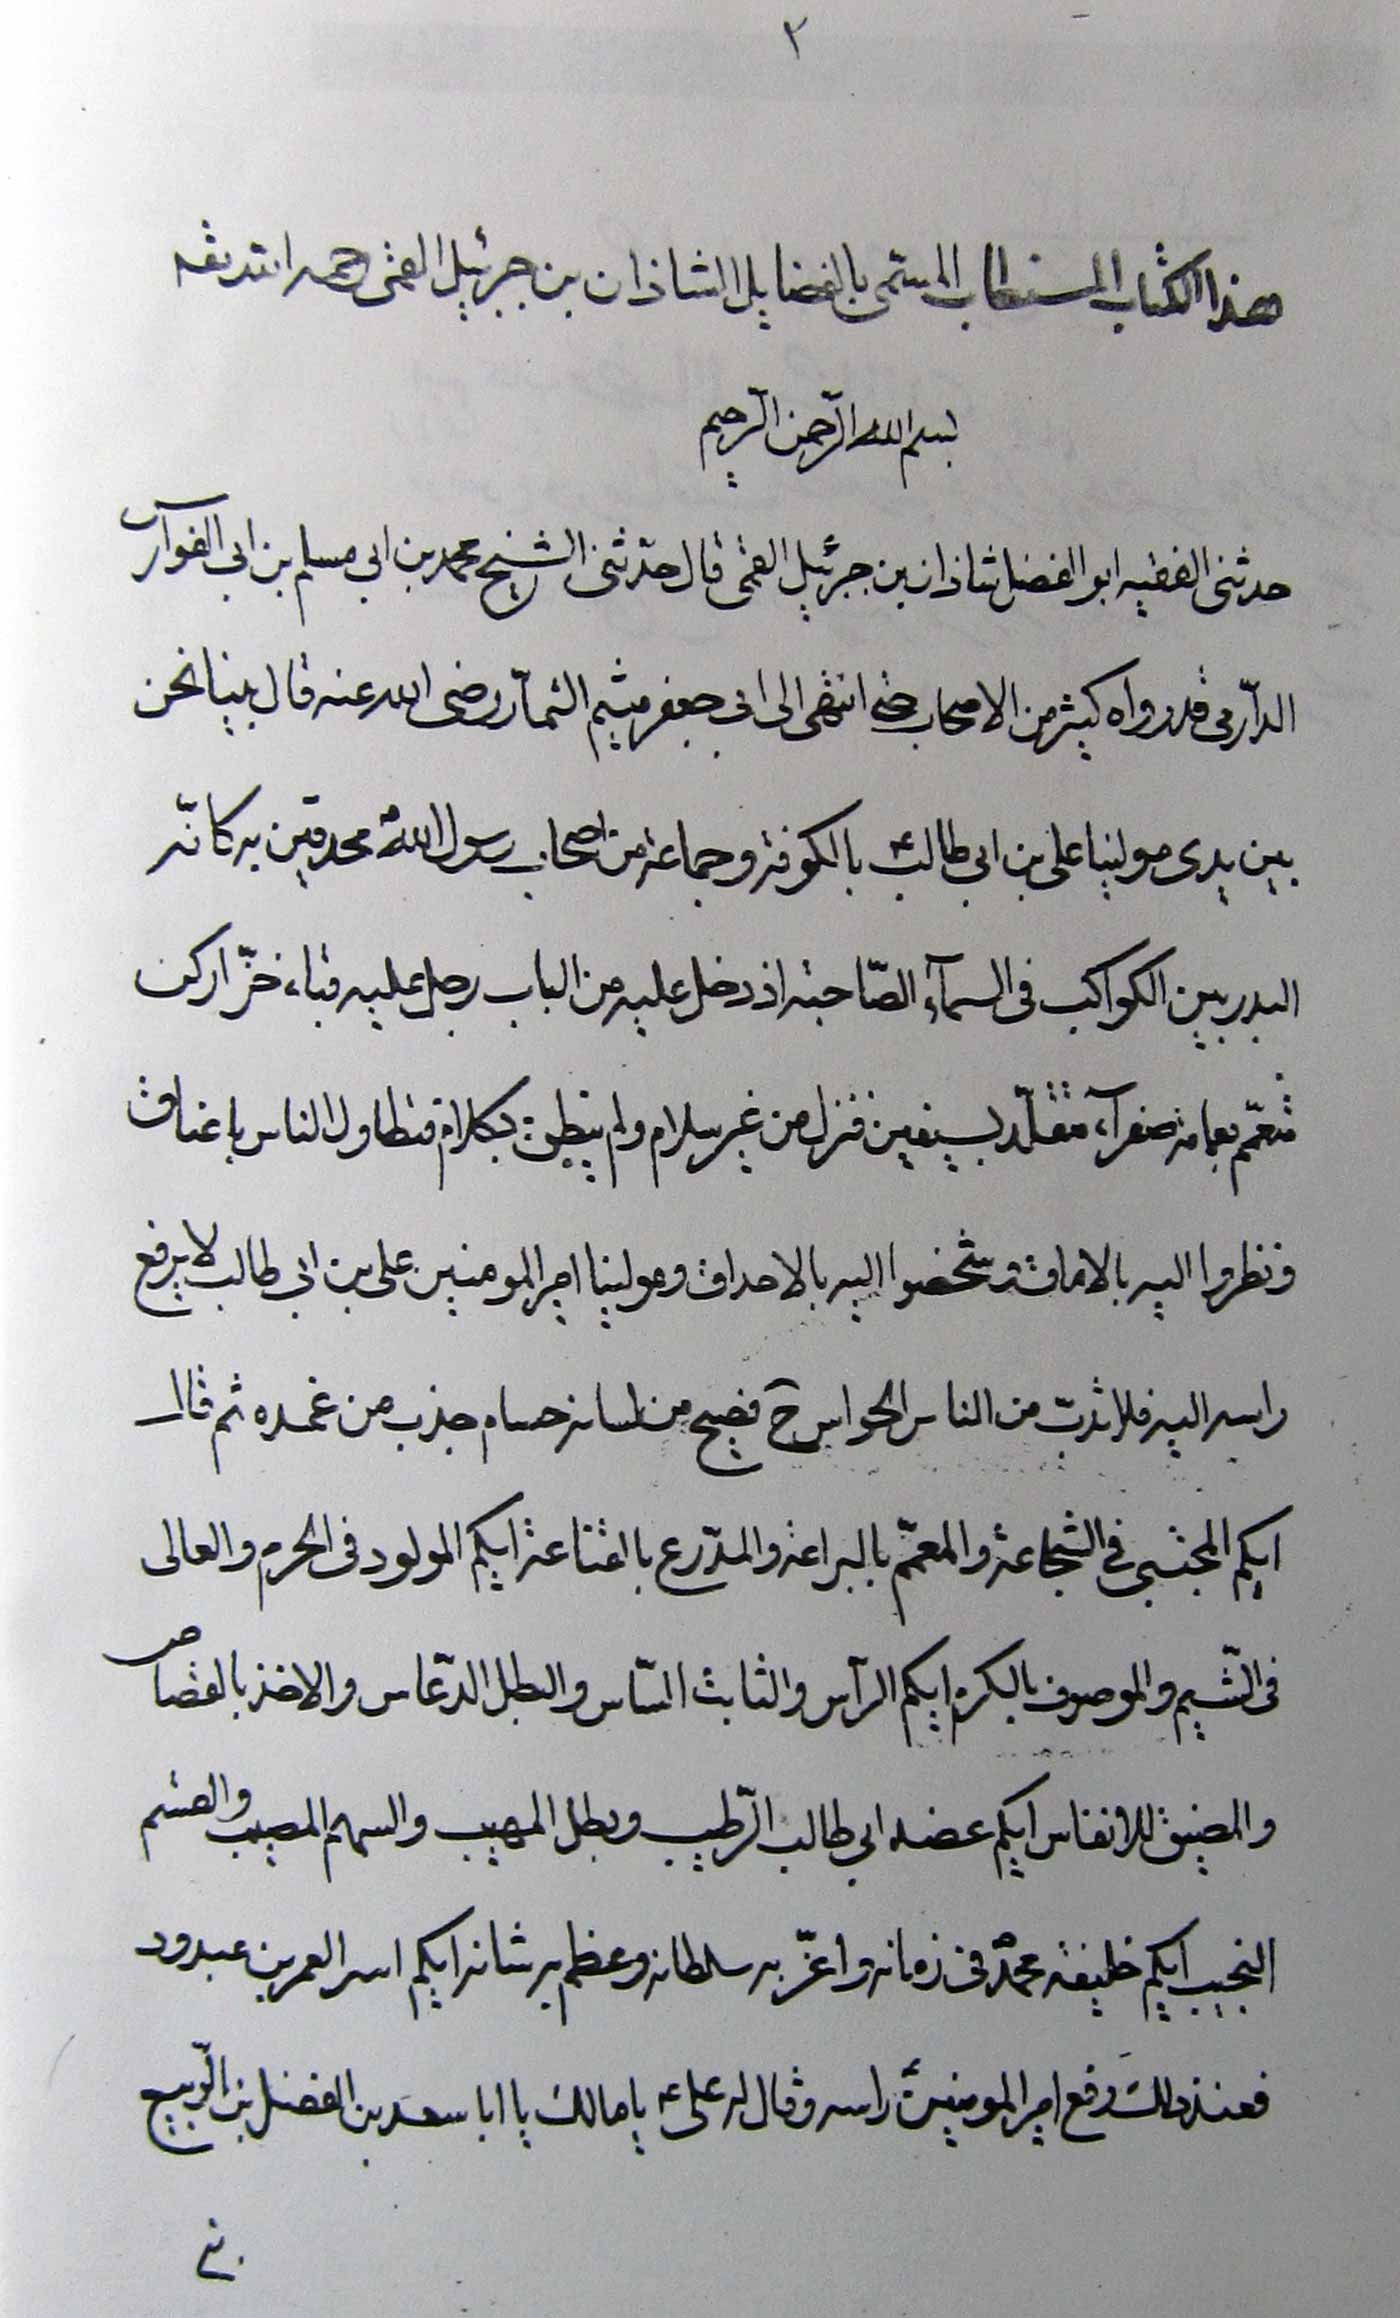 ٢
هذا الكتاب المستطاب المسمى بالفضايل الشاذان بن جبرئيل القمى رحمه
بسم الله الرّحمن الرّحيم
حدثنى الفقيه ابو الفضل شاذان بن جبرئيل القمى قال حدّثنى الشيخ محمد بن ابي مسلم بن ابى الفوآرس
الدآرمى قد رواه كثير من الاصحاب حتى انتهى الى ابى جعفر ميثم التمّار رضى الله عنه قال بينا نحن
بين يدى مولينا على بن ابى طالب ع بالكوفة وجماعة من اصحاب رسول الله ص محدقين به كانّه
البدر بين الكواكب فى السمآء الصّاحية اذ دخل عليه من الباب رجل عليه قباء خزّ اركن
متعمّم بعمامة صفرآء متقلّد بسيفين فنزل من غير سلام ولم ينطق بكلام فتطاول الناس باعناق
ونظروا اليه بالاماق وشخصوا اليه بالاحداق ومولينا امير المومنين على بن ابى طالب لا يرفع
راسه اليه فلما هدت من الناس الحواس ح فصيح من لسانه حسام جذب من غمده ثم قال
ايكم المجتبى فى الشجاعة والمعمّم بالبراعة والمدّرع بالقناعة ايكم المولود فى الحرم والعالى
فى الشّيم والموصوف بالكرم ايكم الرآس والثابت السّاس والبطل الدّعاس والاخذ بالقصاص
والمضيق للانفاس ايكم عضد ابى طالب الرّطيب وبطل المهيب والسهم المصيب والقسم
النجيب ايكم خليفة محمد ص فى زمانه واعزّ به سلطانه وعظم به شانه ايكم اسر العمر بن عبدود
فعند ذلك رفع امير المومنين ع راسه وقال له على ع يا مالك يا ابا سعد بن الفضل بن الرّبيع